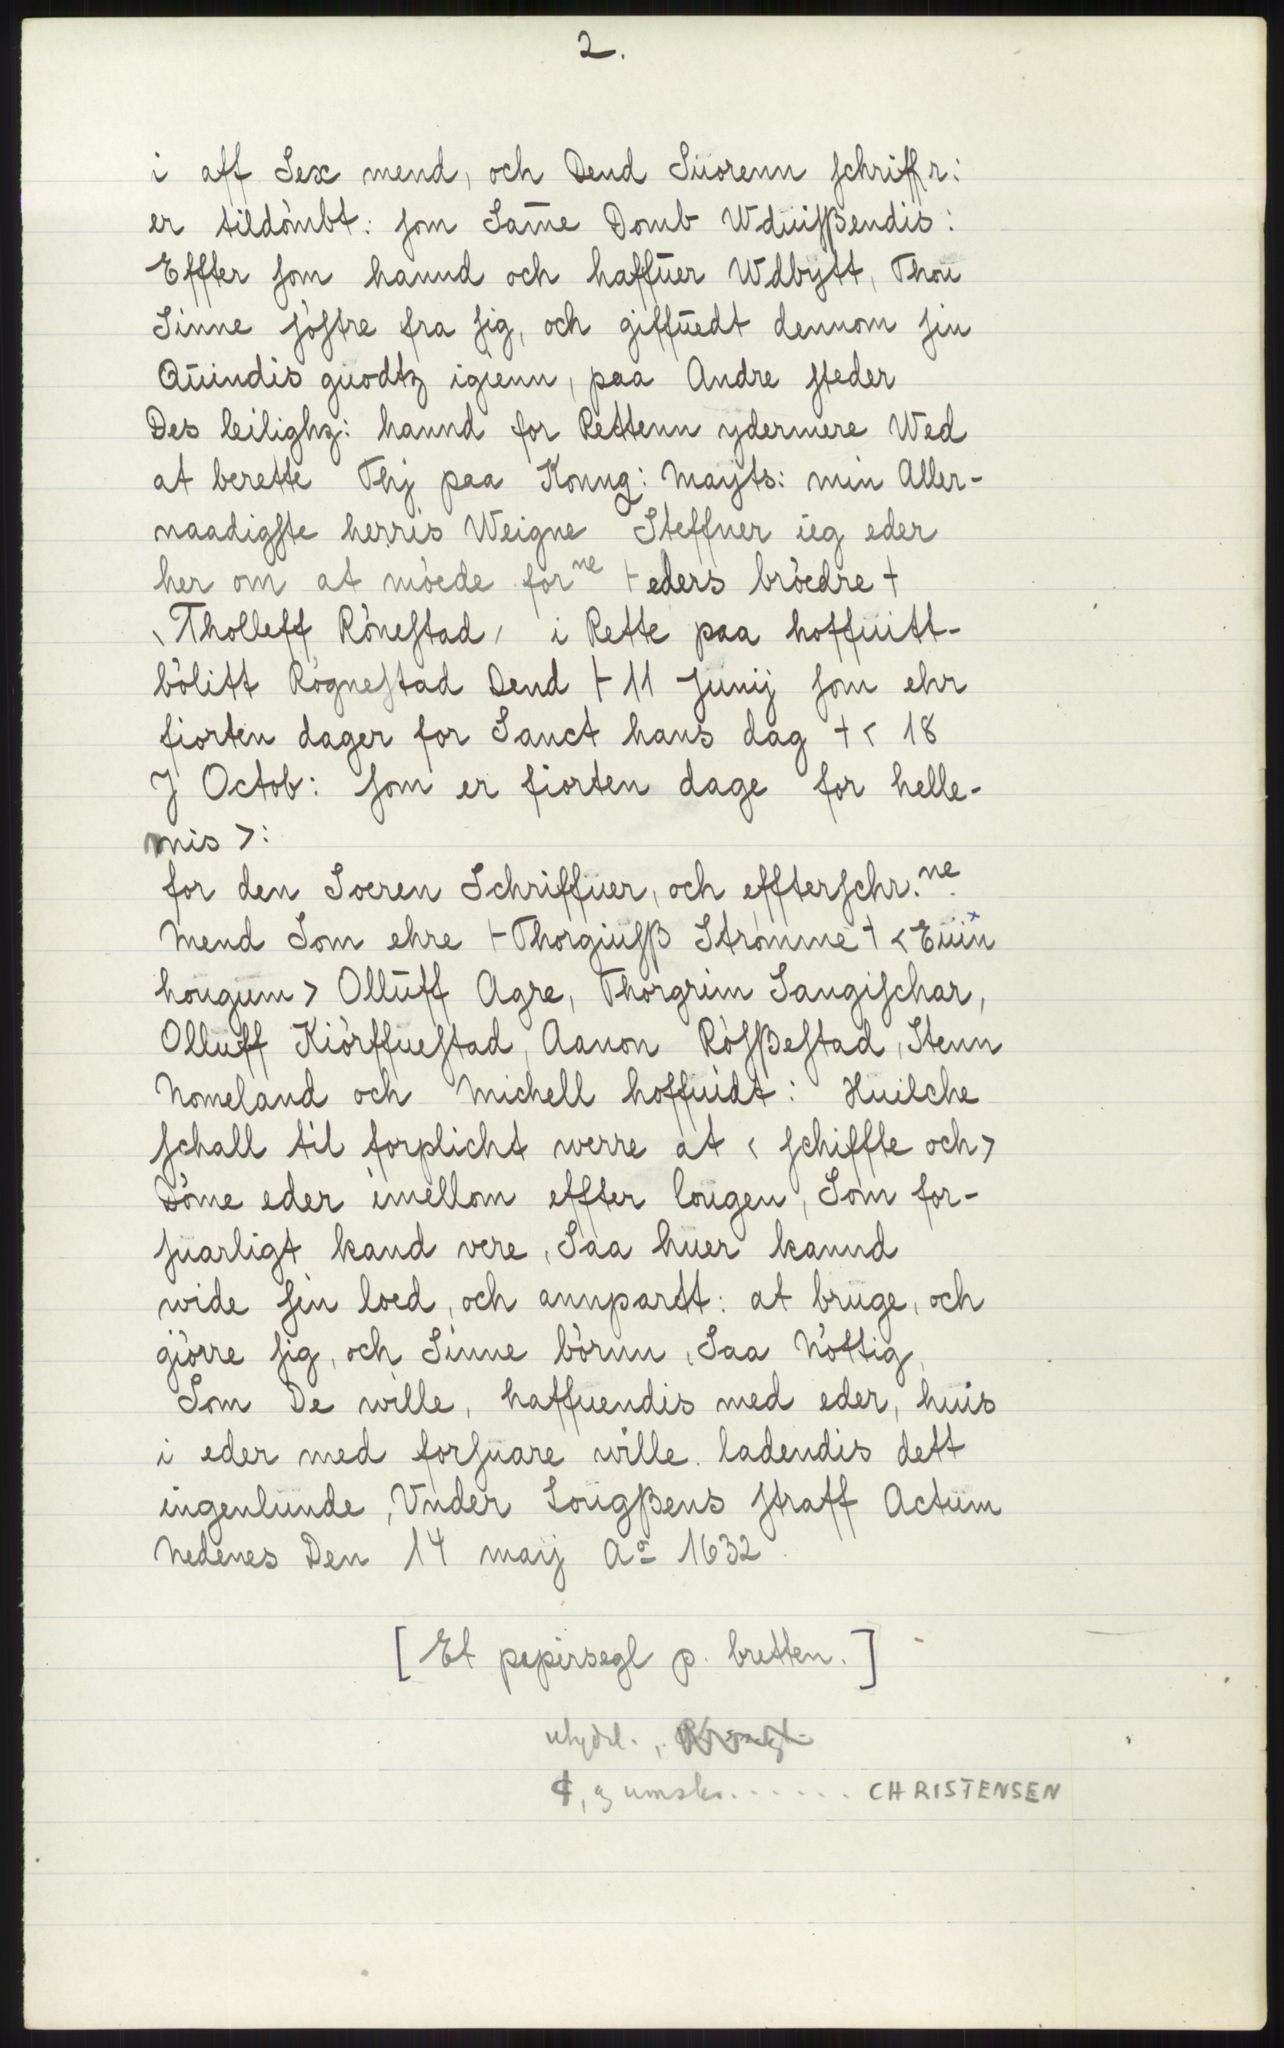 2.
i aff Sex mend, och Dend Suorenn schriffr:
er tildòmbt: som Sam̄e Domb Wduisßendis:
Effter som hannd och haffuer Wdbytt, Thou
Sinne sòstre fra sig, och giffuedt dennom sin
Quindis guodtz igienn, paa Andre steder
Des leilighz: hannd for Rettenn ydermere Wed
at berette Thj paa Konng: Mayts: min Aller-
naadigste herris Weigne Steffner ieg eder
her om at mòede forⁿᵉ ⊢ eders bròedre +
‹ Tholleff Rònestad › i Rette paa hoffuitt-
bòlitt Rògnestad Dend ⊢ 11 Junij som ehr
fiorten dager for Sanct hans dag + < 18
J Octob: som er fiorten dage for helle-
mis >:
for den Soeren Schriffuer, och effterschr.ⁿᵉ
Mend Som ehre ⊢ Thorgiusß Stromme + < Euin ˣ
hougum > Olluff Agre, Thorgrim Sangischar,
Olluff Kiòrffuestad, Aanon Ròsßestad, Stenn
Nomeland och Michell hoffuidt: Huilche
schall til forplicht werre at < schiffte och >
Dòme eder imellom effter lougen, Som for-
suarligt kand vere, Saa huer kannd
wide sin loed, och annpardt: at bruge, och
giòrre sig, och Sinne bòrnn, Saa Nòttig,
Som De wille, haffuendis med eder, huis
i eder med forsuare wille. ladendis dett
ingenlunde, Vnder Lougßens straff Actum
Nedenes Den 14 maij Aº 1632
[ Et papirsegl p. bretten. ]
CHRISTENSEN